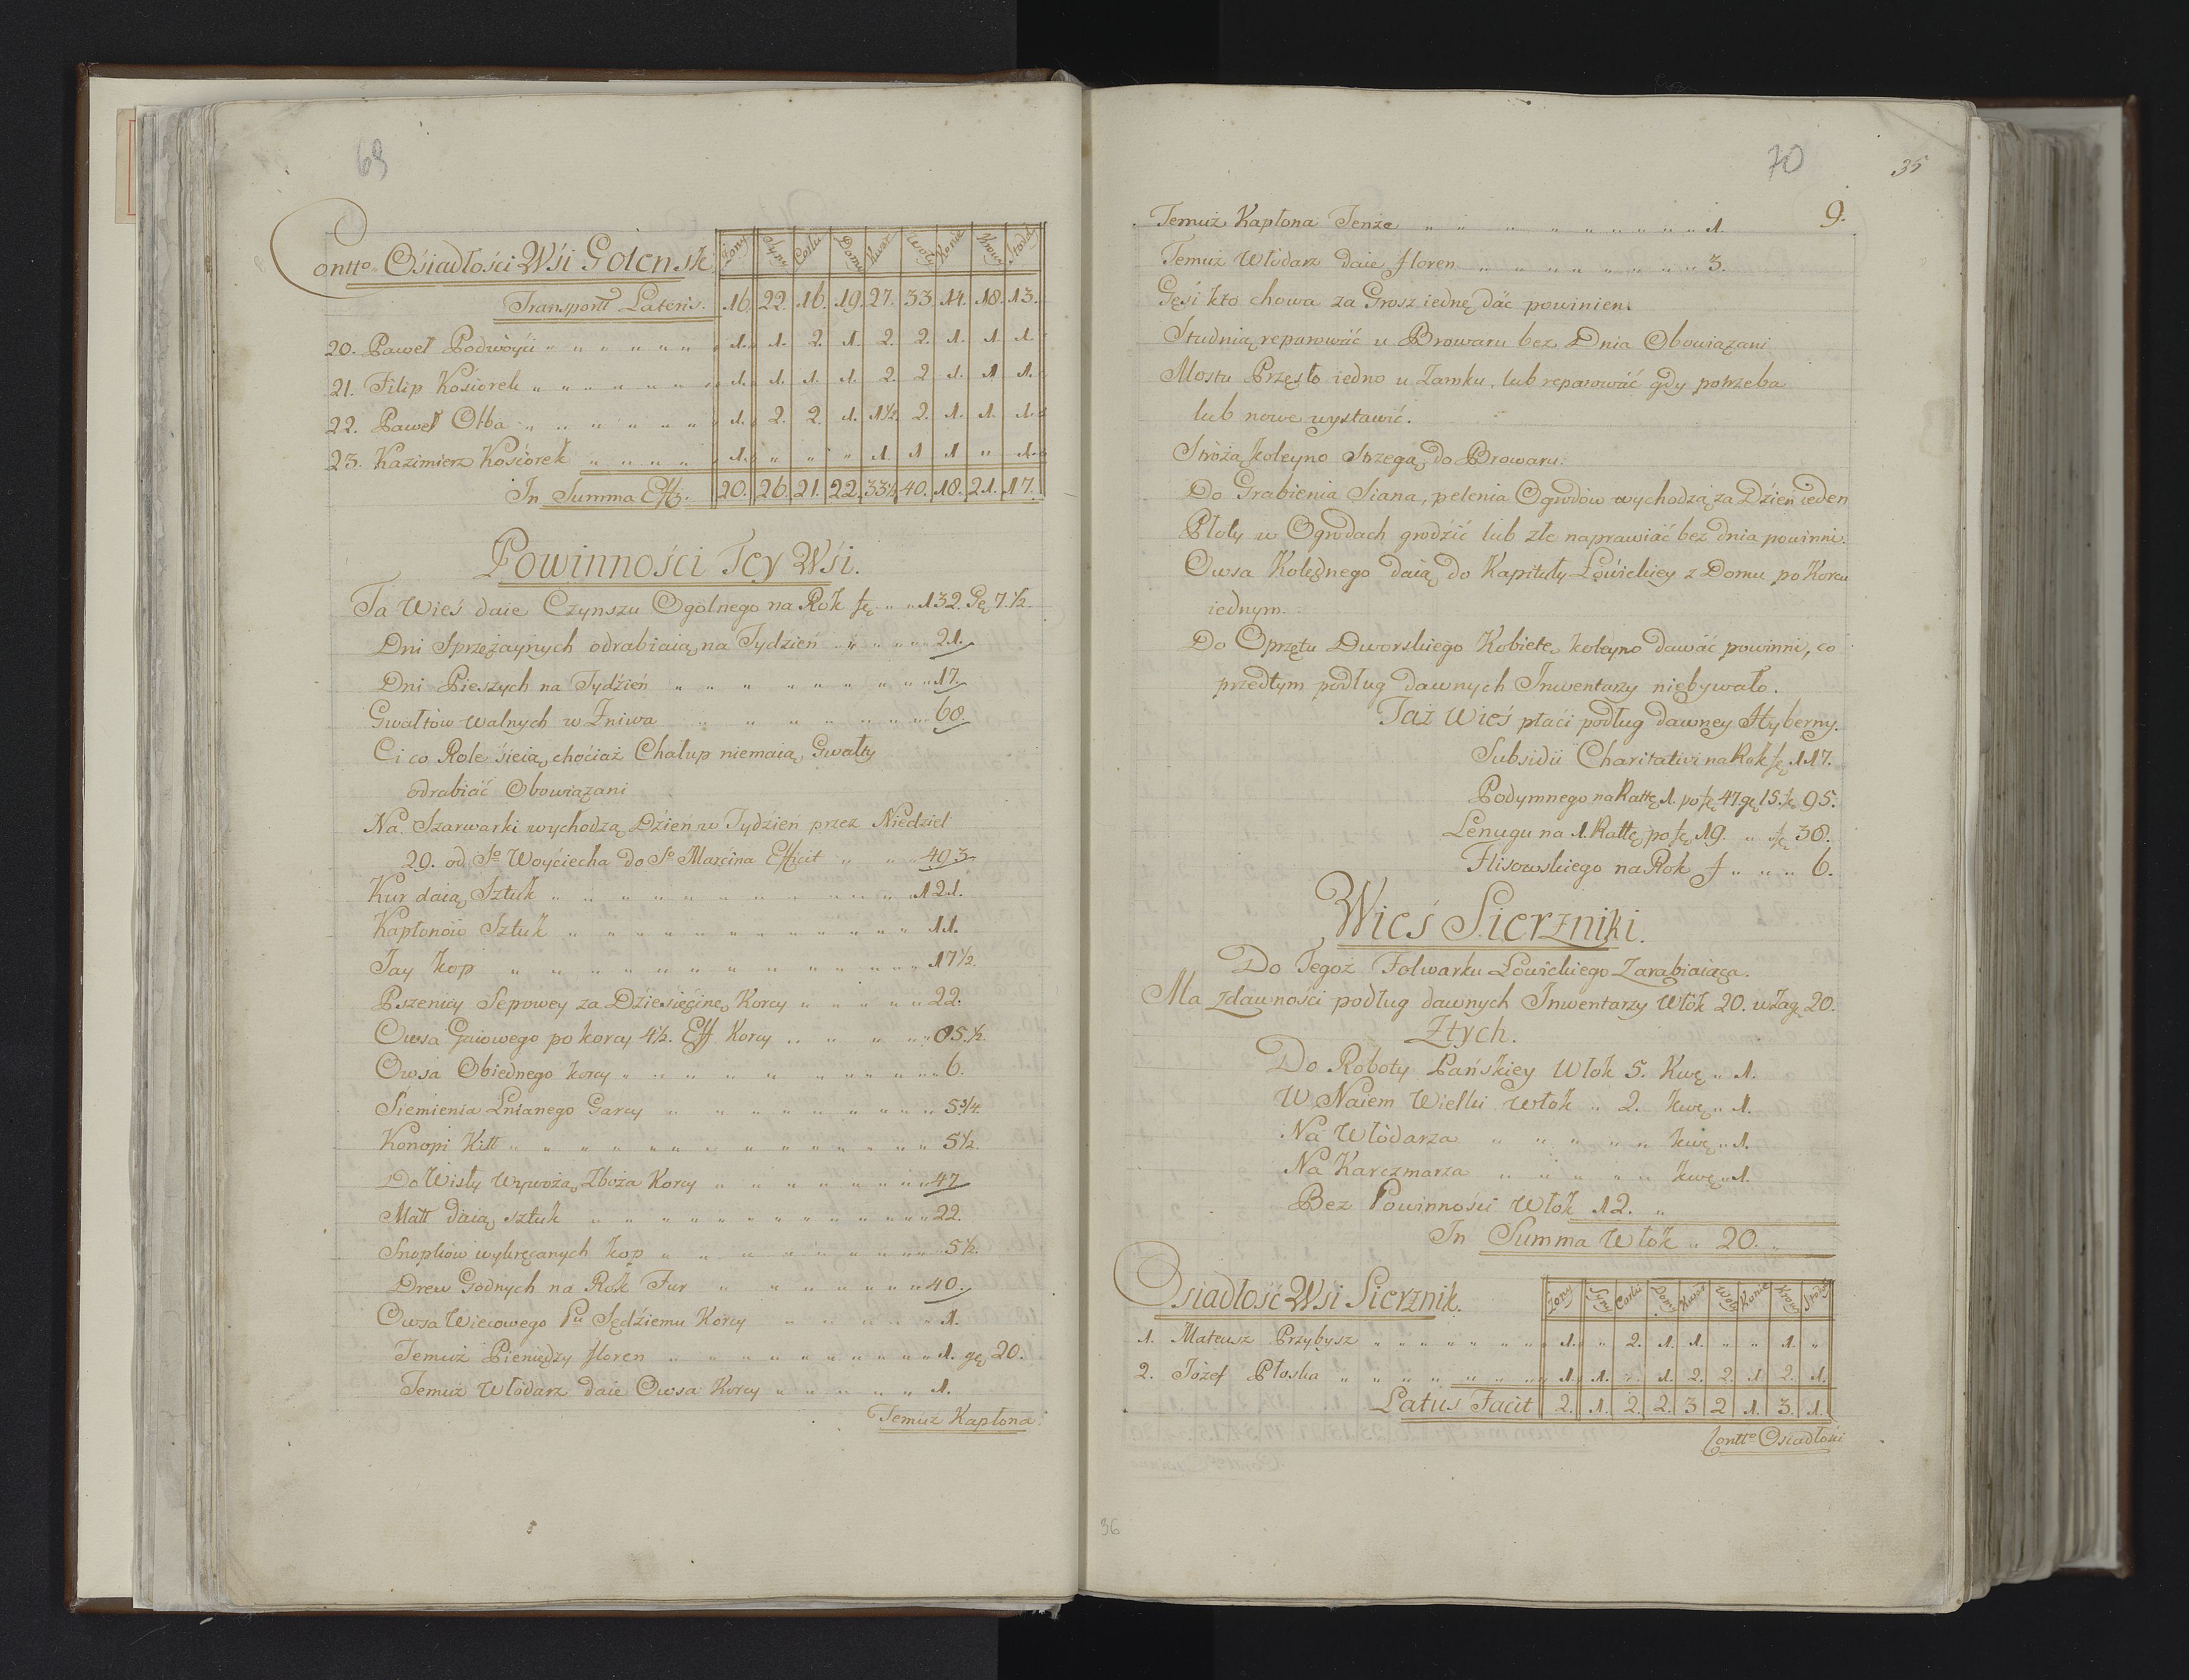 69
Contto Osiadłości Wśi Golensk
Żony Syny Corki Domy Kwar Woły Konie Krowy Stodoł
Transport Lateris. 16. 22. 16. 19. 27. 33. 14. 18. 13.
20. Paweł Podwoyći „ „ „ „ „ „ 1. 1. 2. 1. 2. 2. 1. 1. 1.
21. Filip Kośiorek „ „ „ „ „ „ 1. 1. 1. 1. 2. 2 1. 1 1.
22. Paweł Olba „ „ „ „ „ „ 1. 2. 2. 1. 1½. 2. 1. 1. 1.
23. Kazimierz Kośiorek „ „ „ „ 1. „ „ „ 1. 1 1 „ 1.
In Summa Eff: 20. 26. 21. 22. 33½. 40. 18. 21. 17.
Powinnosci Tey Wśi.
Ta Wieś daie Czynszu Ogolnego na Rok fę „ „ 132. Gę 7.½.
Dni Sprzężaynych odrabiaią na Tydzień „ „ „ „ 21.
Dni Pieszych na Tydźień „ „ „ „ „ „ „ 17.
Gwałtow walnych w Zniwa „ „ „ „ „ „ 68.
Ci co Role sieią, choćiaż Chałup niemaią, Gwałty
odrabiać Obowiązani
Na Szarwarki wychodzą Dźień w Tydzień przez Niedziel
29. od So Woyćiecha do So Marcina Efficit „ „ 493.
Kur daią Sztuk „ „ „ „ „ „ „ „ „ 121.
Kapłonow Sztuk „ „ „ „ „ „ „ „ „ 11.
Jay kop „ „ „ „ „ „ „ „ „ „ 17½.
Pszenicy Sepowey za Dźiesięćinę Korcy „ „ „ „ 22.
Owsa Gaiowego po korcy 4½. Eff. Korcy „ „ „ „ 85.½.
Owsa Obiednego korcy „ „ „ „ „ „ „ 6.
Siemienia Lnianego Garcy „ „ „ „ „ „ „ 5¾.
Konopi Kitt „ „ „ „ „ „ „ „ „ 5½.
Do Wisły Wywożą Zboża Korcy „ „ „ „ „ „ 47
Matt daią sztuk „ „ „ „ „ „ „ „ 22.
Snopkow wykręcanych kop „ „ „ „ „ „ 5½.
Drew Godnych na Rok Fur „ „ „ „ „ „ 40.
Owsa Wiecowego Pu Sędźiemu Korcy „ „ „ „ 1.
Temuż Pieniędzy floren „ „ „ „ „ „ „ 1. gę 20.
Temuż Włodarz daie Owsa Korcy „ „ „ „ „ 1.
Temuż Kapłona
70
35
9.
Temuż Kapłona Tenże „ „ „ „ „ „ „ „ 1.
Temuż Włodarz daie floren „ „ „ „ „ „ „ 3.
Gęśi kto chowa za Grosz iednę dać powinien.
Studnią reparować u Browaru bez Dnia Obowiązani
Mostu Przęsło iedno u Zamku, lub reparować gdy potrzeba
lub nowe wystawić.
Stroża koleyno Strzegą do Browaru.
Do Grabienia Siana, pelenia Ogrodow wychodzą za Dźień ieden
Płoty w Ogrodach grodźić lub złe naprawiać bez dnia powinni.
Owsa Kolędnego daią do Kapituły Łowickiey z Domu po Korcu
iednym.
Do Oprzętu Dworskiego Kobietę koleyno dawać powinni, co
przedtym podług dawnych Inwentarzy niebywało.
Taż Wieś płaći podług dawney Hyberny.
Subsidii Charitativi na Rok fę 117.
Podymnego na Rattę 1. po fę 47. gę 15. fę 95.
Lenugu na 1. Rattę po fę 19. „ fę 38.
Flisowskiego na Rok f „ „ „ 6.
Wieś Sierzniki.
Do Tegoż Folwarku Łowickiego Zarabiaiąca.
Ma zdawnośći podług dawnych Inwentarzy Włok 20. w Zag. 20.
Z tych.
Do Roboty Pańskiey Włok 5. Kwę „ 1.
W Naiem Wielki Włok „ 2. kwę „ 1.
Na Włodarza „ „ „ „ „ kwę „ 1.
Na Karczmarza „ „ „ „ „ kwę „ 1.
Bez Powinnośći Włok 12. „
In Summa Włok „ 20. „
Osiadłość Wśi Sierznik.
Żony Syny Corki Domy Kwar Woły Konie Krow Stodoł
1. Mateusz Przybysz „ „ „ „ „ „ 1. „ 2. 1. 1. „ „ 1. „
2. Jozef Płoska „ „ „ „ „ „ 1. 1. „ 1. 2. 2. 1 2. 1.
Latus Facit 2. 1. 2. 2. 3 2 1. 3. 1.
Contto Osiadłości
36